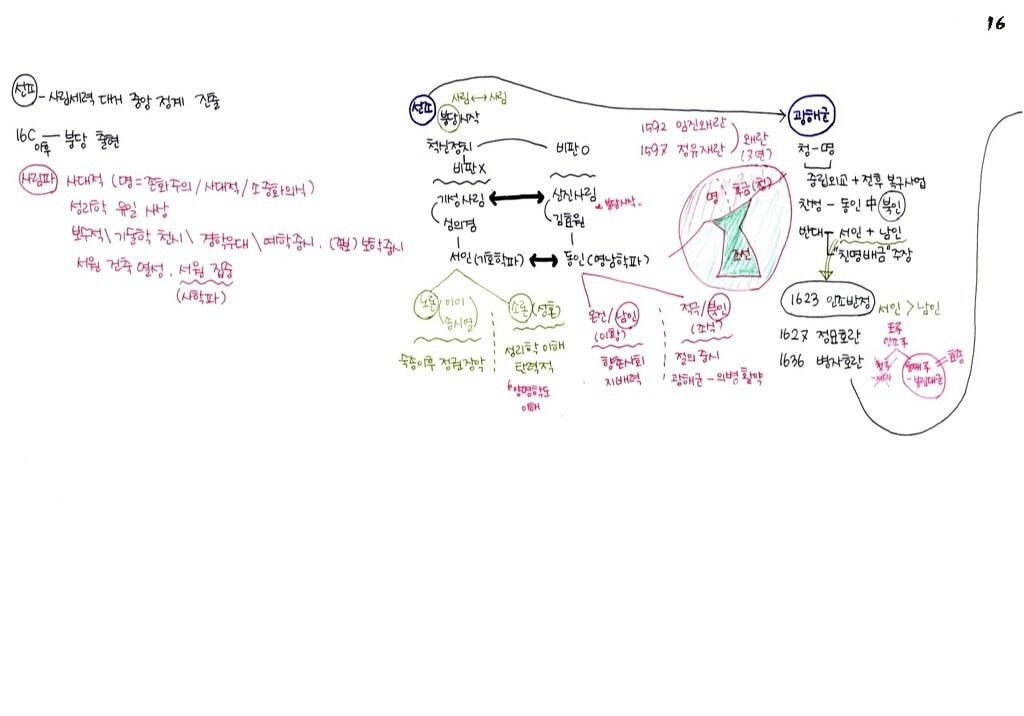 16
선조 - 사림세력 대거 중앙 정계 진출
16C 이후 — 붕당 출현
사림파 사대적 (명=존화주의/사대적/소중화의식)
성리학 유일 사상
보수적\ 기술학 천시\ 경학우대\ 예학중시, (족보) 보학중시
서원 건축 열성, 서원 집중
(사학파)
선조
사림↔사림
붕당시작
척신정치
비판X
비판O
기성사림 ↔ 신진사림
"붕당시작"
심의겸
김효원
서인 (기호학파) ↔ 동인 (영남학파)
노론 (이이
송시열)
숙종이후 정권장악
소론 (성혼)
성리학 이해
탄력적
양명학도
이해
온건/남인
(이황)
향촌사회
지배력
적극/북인
(조식)
절의 중시
광해군 - 의병 활약
1592 임진왜란
1597 정유재란
왜란
(7년)
명
후금(청)
조선
광해군
청-명
중립외교 + 전후 복구사업
찬성 - 동인 中 북인
반대 - 서인 + 남인
"친명배금"주장
1623 인조반정
서인 > 남인
1627 정묘호란
1636 병자호란
인조 후
둘째 후
- 봉림대군
효종